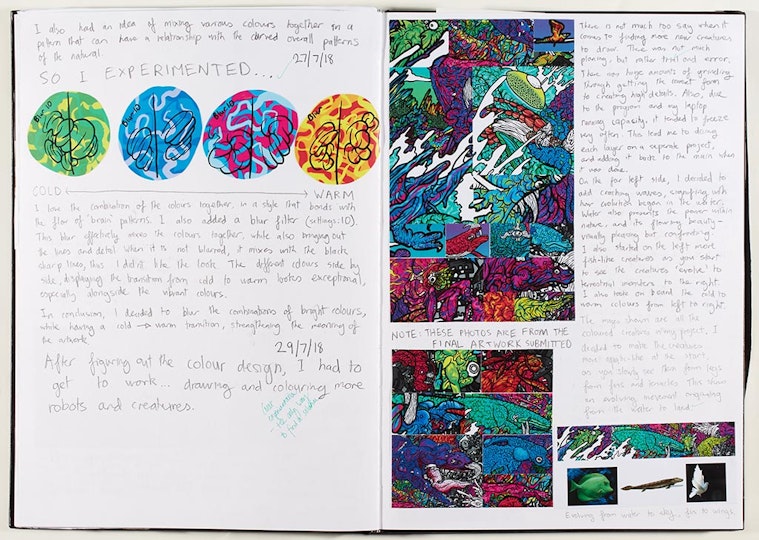 I also had an idea of mixing various colours together in a
pattern that can have a relationship with the curved overall patterns
of the natural.
27/7/18
SO I EXPERIMENTED....
Blur:10
Blur:10
Blur:10
Blur
COLD WARM
I love the combination of the colours together, in a style that bonds with
the flow of 'brain' patterns. I also added a blur filter (settings:10).
This blur effectively mixes the colours together, while also bringing out
the lines and detail. When it is not blurred, it mixes with the black
sharp lines, thus I didn't like the look. The different colours side by
side, displaying the transition from cold to warm looks exceptional,
especially alongside the vibrant colours.
In conclusion, I decided to blur the combinations of bright colours,
while having a cold → warm transition, strengthening the meaning of
the artwork.
29/7/18
After figuring out the colour design, I had to
get to work... drawing and colouring more
robots and creatures.
the only way
to find a solution
NOTE: THESE PHOTOS ARE FROM THE
FINAL ARTWORK SUBMITTED
There is not much too say when it
comes to finding more new creatures
to draw. There was not much
planning, but rather trial and error.
There was huge amounts of grinding
through getting the correct form
and creating high details. Also, due
to the program and my laptop
running capacity, it tended to freeze
very often. This lead me to doing
each layer on a separate project,
and adding it back to the main when
it was done.
On the far left side, I decided to
add crashing waves, signifying with
how evolution began in the water.
Water also presents the power within
nature, and its flowing beauty -
visually pleasing but comforting.
I also started on the left more
fish-like creatures as you start
to see the creatures 'evolve' to
terrestrial monsters to the right.
I also took on board the cold to
warm colours from left to right.
The images shown are all the
coloured creatures in my project, I
decided to make the creatures
more aquatic-like at the start,
as you slowly see them form legs
from fins and tentacles. This shows
an evolving movement originating
from the water to land.
Evolving from water to sky.. fin to wings